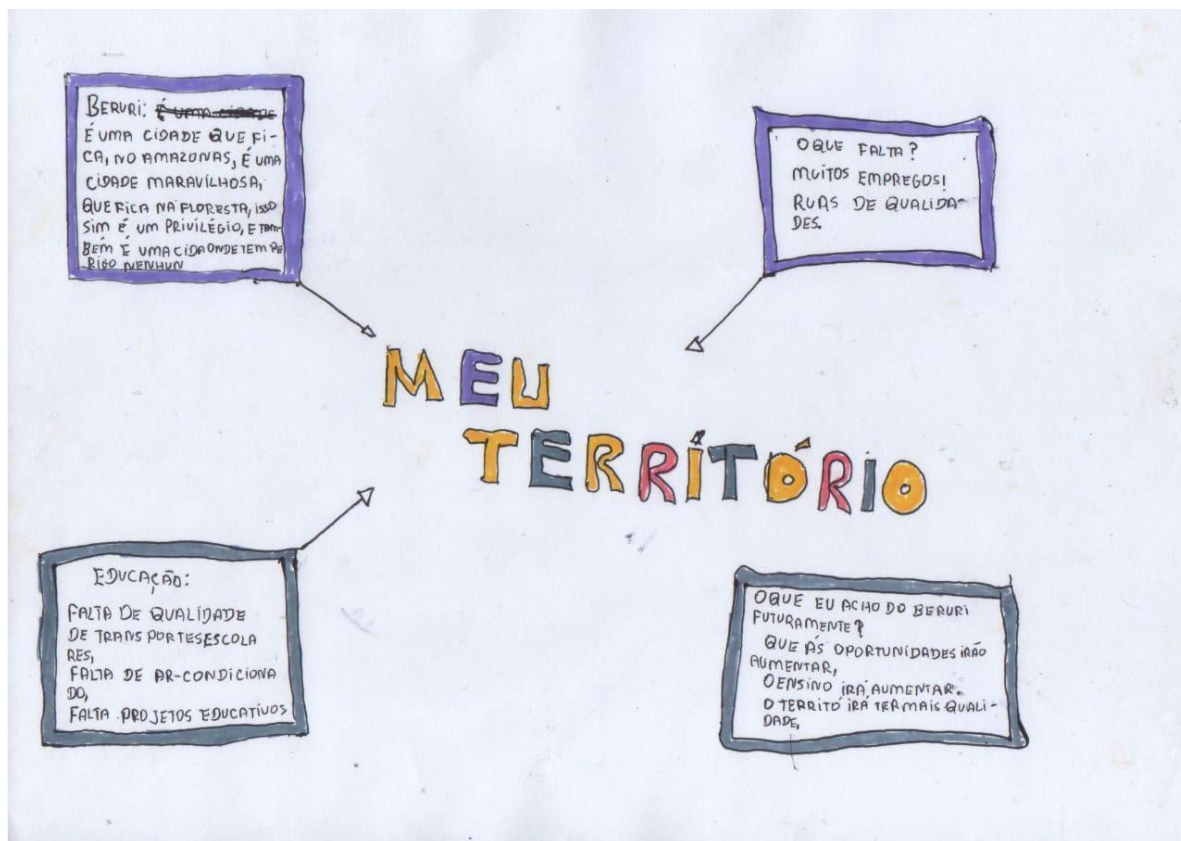 BERURI: É UMA CIDADE
É UMA CIDADE QUE FI-
CA, NO AMAZONAS, É UMA
CIDADE MARAVILHOSA,
QUE FICA NA FLORESTA, ISSO
SIM É UM PRIVILÉGIO, E TAM-
BÉM É UMA CIDA ONDE TEM PE
RIGO NENHUN
OQUE FALTA?
MUITOS EMPREGOS!
RUAS DE QUALIDA-
DES.
MEU
TERRÍTÓRIO
EDUCAÇÃO:
FALTA DE QUALIDADE
DE TRANSPORTES ESCOLA
RES,
FALTA DE AR-CONDICIONA
DO,
FALTA PROJETOS EDUCATIVOS
OQUE EU ACHO DO BERURI
FUTURAMENTE?
QUE AS OPORTUNIDADES IRÃO
AUMENTAR,
O ENSINO IRÁ AUMENTAR.
O TERRITÓ IRÁ TER MAIS QUALI-
DADE,